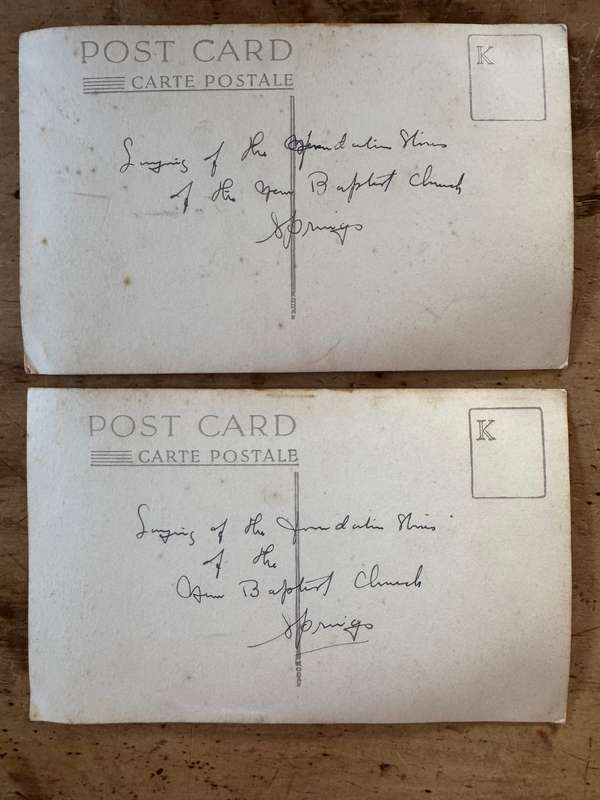 POST CARD
CARTE POSTALE
K
Laying of the Foundation Stones
of the New Baptist Church
Springs
POST CARD
CARTE POSTALE
K
Laying of the Foundation Stones
of the
New Baptist Church
Springs